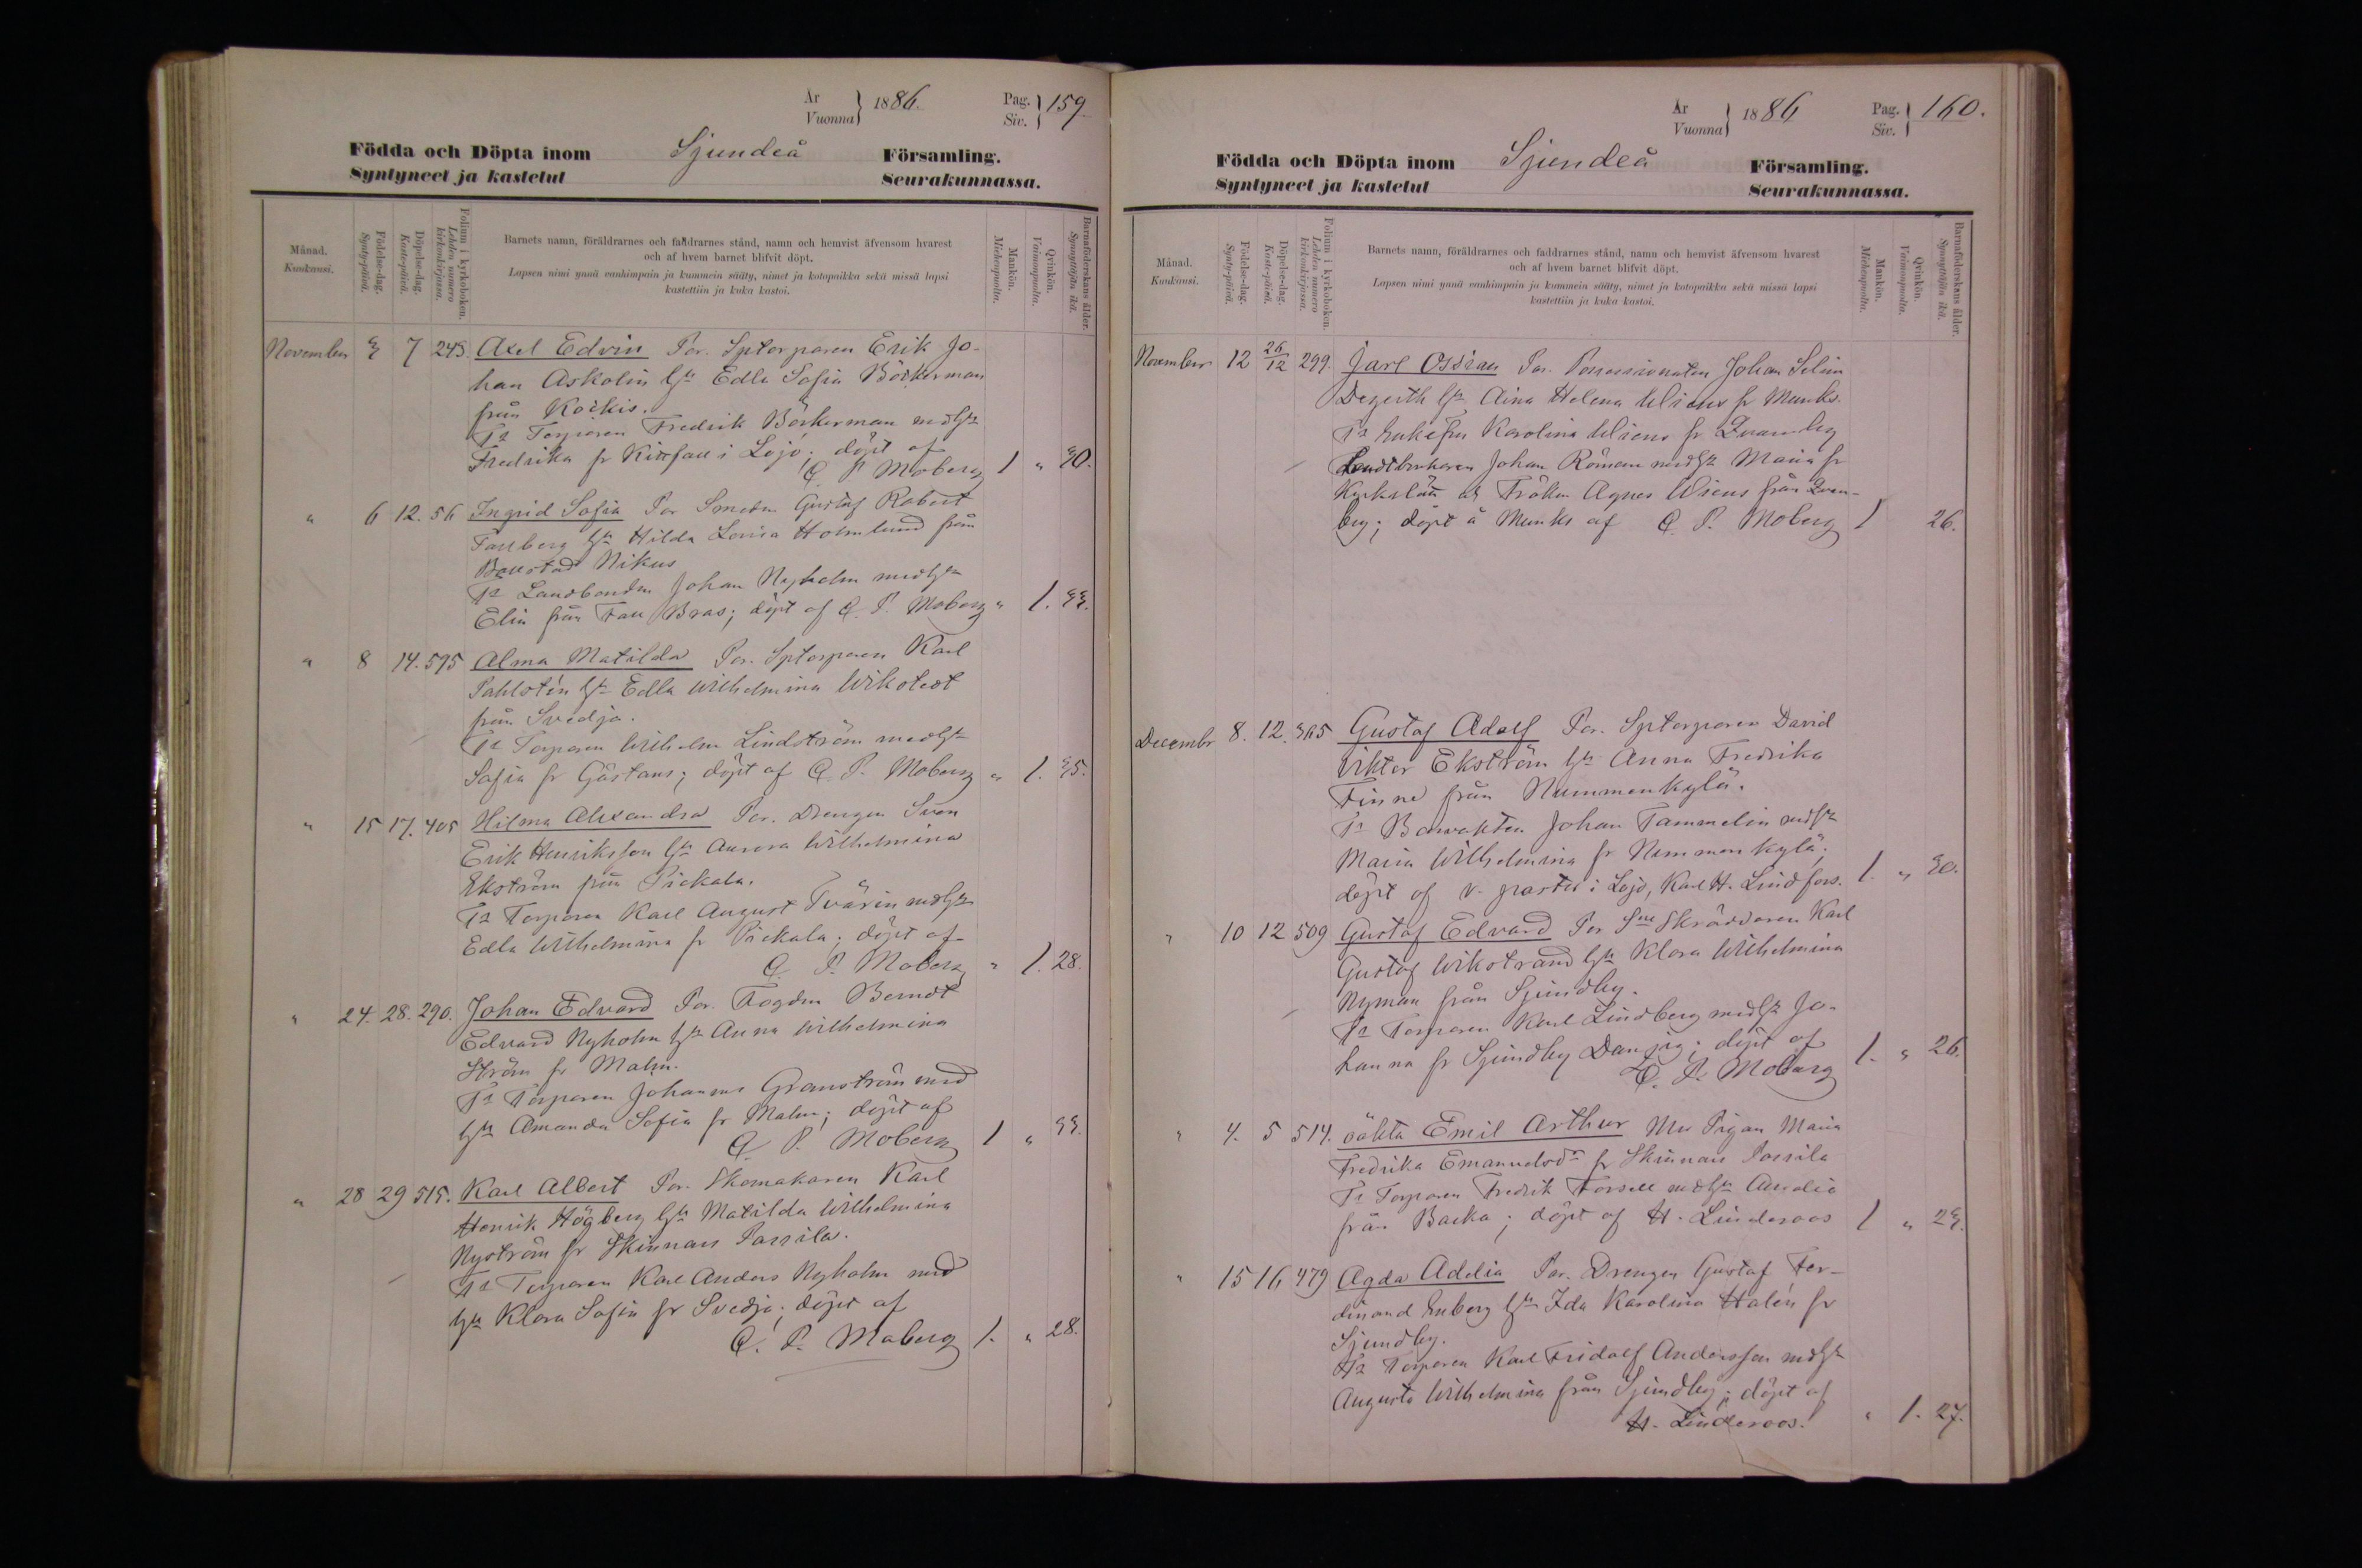 År
Vuonna } 1886. Pag.
Siv. } 159.
Födda och Döpta inom Sjundeå Församling.
Syntyneet ja kastetut Seurakunnassa.
Månad.
Kuukausi.
Födelse-dag.
Synty-päivä.
Döpelse-dag.
Kaste-päivä.
Folium i kyrkoboken.
Lehden numero kirkonkirjassa.
Barnets namn, föräldrarnes och faddrarnes stånd, namn och hemvist äfvensom hvarest
och af hvem barnet blifvit döpt.
Lapsen nimi ynnä vanhimpain ja kummein sääty, nimet ja kotopaikka sekä missä lapsi
kastettiin ja kuka kastoi.
Mankön.
Miehenpuolta.
Qvinkön.
Vaimonpuolta.
Barnaföderskans ålder.
Synnyttäjän ikä.
November 3 7 243. Axel Edvin Par. Sptorparen Erik Jo-
han Askolin hu Edla Sofia Böckerman
från Kockis.
Ts Torparen Fredrik Böckerman med hu
Fredrika fr i Lojo; döpt af
C. P. Moberg 1 " 30.
" 6 12. 56 Ingrid Sofia Par Smeden Gustaf Robert
Fallberg hu Hilda Lovisa Holmlund från
Böllstad Nikus
Ts Landbonden Johan Nyholm med hu
Elin från Fall Bras; döpt af C. P. Moberg " 1. 33.
" 8 14. 595 Alma Matilda Par. Sptorparen Karl
Pahlstén hu Edla Wilhelmina Wikstedt
från Svedja.
Ts Torparen Wilhelm Lindström med hu
Sofia fr Gästans; döpt af C. P. Moberg " 1. 35.
" 15 17. 405 Hilma Alexandra Par. Drengen Sven
Erik Henriksson hu Aurora Wilhelmina
Ekström från Pickala.
Ts Torparen Karl August Tvärin med hu
Edla Wilhelmina fr Pickala; döpt af
C. P. Moberg " 1. 28.
" 24. 28. 290. Johan Edvard Par. Fogden Berndt
Edvard Nyholm hu Anna Wilhelmina
Ström fr Malm.
Ts Torparen Johannes Granström med
hu Amanda Sofia fr Malm; döpt af
C. P. Moberg 1 " 33.
" 28 29 515. Karl Albert Par. Skomakaren Karl
Henrik Högberg hu Matilda Wilhelmina
Nyström fr Skinnars Passila.
Ts Torparen Karl Anders Nyholm med
hu Klara Sofia fr Svedja; döpt af
C. P. Moberg 1. " 28.
År
Vuonna } 1886 Pag.
Siv. } 160.
Födda och Döpta inom Sjundeå Församling.
Syntyneet ja kastetut Seurakunnassa.
Månad.
Kuukausi.
Födelse-dag.
Synty-päivä.
Döpelse-dag.
Kaste-päivä.
Folium i kyrkoboken.
Lehden numero kirkonkirjassa.
Barnets namn, föräldrarnes och faddrarnes stånd, namn och hemvist äfvensom hvarest
och af hvem barnet blifvit döpt.
Lapsen nimi ynnä vanhimpain ja kummein sääty, nimet ja kotopaikka sekä missä lapsi
kastettiin ja kuka kastoi.
Mankön.
Miehenpuolta.
Qvinkön.
Vaimonpuolta.
Barnaföderskans ålder.
Synnyttäjän ikä.
November 12 26/12 299. Jarl Ossian Par. Possessionaten Johan Selim
Degerth hu Aina Helena Wiens fr Munks.
Ts Enkefru Karolina Wiens fr Qvarnby
Landtbrukaren Johan Röman med hu Maria fr
Kyrkslätt och Fröken Agnes Wiens från Qvarn-
by; döpt å Munks af C. P. Moberg 1 26.
Decembr 8. 12. 365 Gustaf Adolf Par. Sptorparen David
Viktor Ekström hu Anna Fredrika
Finne från Nummenkylä.
Ts Banvakten Johan Tammelin med hu
Maria Wilhelmina fr Nummenkylä;
döpt af v. pastor i Lojo, Karl H. Lindfors. 1. " 30.
" 10 12 509 Gustaf Edvard Par Sne Skräddaren Karl
Gustaf Wikstrand hu Klara Wilhelmina
Nyman från Sjundby.
Ts Torparen Karl Lindberg med hu Jo-
hanna fr Sjundby Danzig; döpt af
C. P. Moberg 1. " 26.
" 4. 5 514. oäkta Emil Arthur Mor Pigan Maria
Fredrika Emanuelsdr fr Skinnars Passila
Ts Torparen Fredrik Forsell med hu Amalia
från Backa; döpt af H. Linderoos 1 " 23.
" 15 16 479 Agda Adelia Par. Drengen Gustaf Fer-
dinand Enberg hu Ida Karolina Halén fr
Sjundby.
Ts Torparen Karl Fridolf Andersson med hu
Augusta Wilhelmina från Sjundby; döpt af
H. Linderoos. " 1. 27.